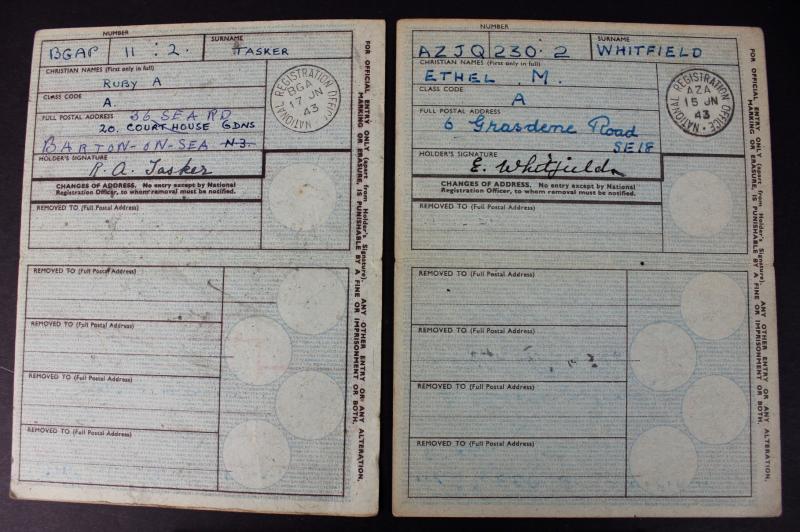 NUMBER
SURNAME
BGAP 11 : 2. TASKER
CHRISTIAN NAMES (First only in full)
RUBY A
CLASS CODE
A.
FULL POSTAL ADDRESS 36 SEA RD
20. COURTHOUSE GDNS
BARTON-ON-SEA N3.
HOLDER'S SIGNATURE
R. A. Tasker
NATIONAL REGISTRATION OFFICE
BGA
17 JN
43
CHANGES OF ADDRESS. No entry except by National
Registration Officer, to whom removal must be notified.
REMOVED TO (Full Postal Address)
REMOVED TO (Full Postal Address)
REMOVED TO (Full Postal Address)
REMOVED TO (Full Postal Address)
REMOVED TO (Full Postal Address)
FOR OFFICIAL ENTRY ONLY (apart from Holder's Signature). ANY OTHER ENTRY OR ANY ALTERATION,
MARKING OR ERASURE, IS PUNISHABLE BY A FINE OR IMPRISONMENT OR BOTH.
NUMBER
SURNAME
AZJQ 230 · 2 WHITFIELD
CHRISTIAN NAMES (First only in full)
ETHEL . M.
CLASS CODE
A
FULL POSTAL ADDRESS
6 Grasdene Road
SE18
HOLDER'S SIGNATURE
E. Whitfield
NATIONAL REGISTRATION OFFICE
AZA
15 JN
43
CHANGES OF ADDRESS. No entry except by National
Registration Officer, to whom removal must be notified.
REMOVED TO (Full Postal Address)
REMOVED TO (Full Postal Address)
REMOVED TO (Full Postal Address)
REMOVED TO (Full Postal Address)
REMOVED TO (Full Postal Address)
FOR OFFICIAL ENTRY ONLY (apart from Holder's Signature). ANY OTHER ENTRY OR ANY ALTERATION,
MARKING OR ERASURE, IS PUNISHABLE BY A FINE OR IMPRISONMENT OR BOTH.